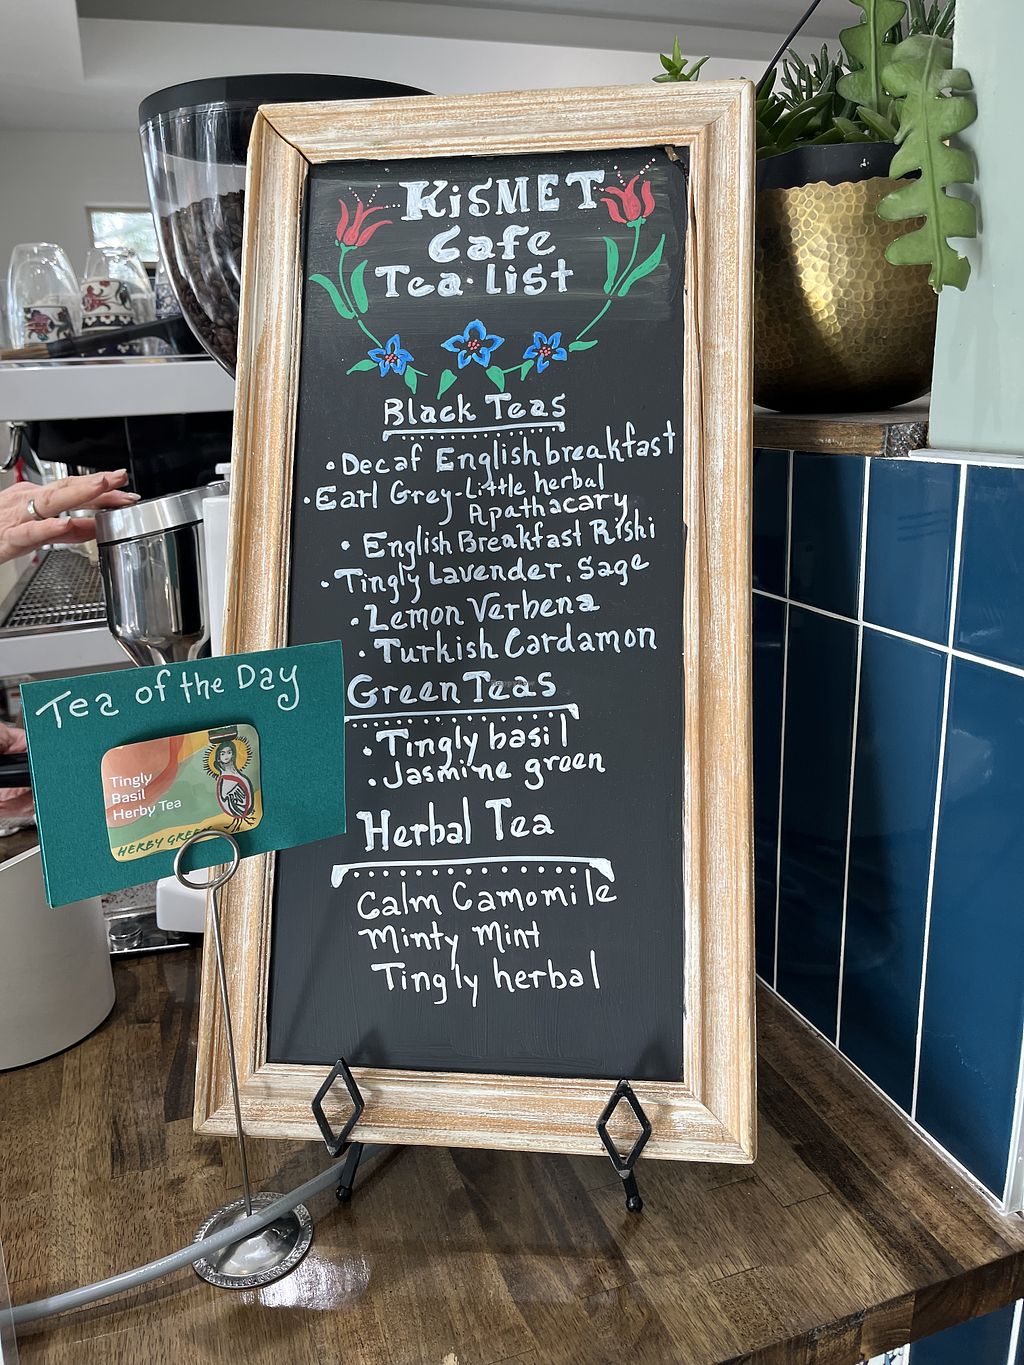 KiSMET
Cafe
Tea·list
Black Teas
•Decaf English breakfast
•Earl Grey-Little herbal
Apathacary
• English Breakfast Rishi
•Tingly Lavender, Sage
•Lemon Verbena
•Turkish Cardamon
Green Teas
•Tingly basil
•Jasmine green
Herbal Tea
Calm Camomile
Minty Mint
Tingly herbal
Tea of the Day
Tingly
Basil
Herby Tea
HERBY GREEN